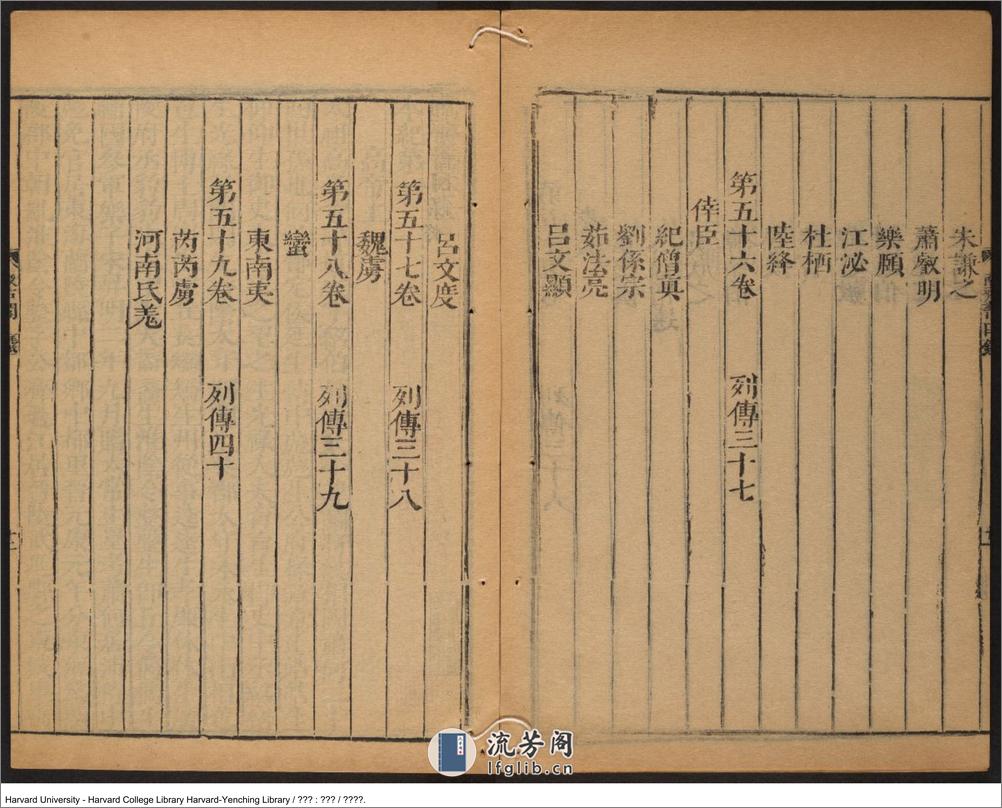 朱謙之
蕭叡明
樂頤
江泌
杜栖
陸絳
第五十六卷　列傳三十七
倖臣
紀僧真
劉係宗
茹法亮
呂文顯
呂文度
第五十七卷　列傳三十八
魏虜
第五十八卷　列傳三十九
蠻
東南夷
第五十九卷　列傳四十
芮芮虜
河南氐羌
汲古閣
流芳阁
lfglib.cn
Harvard University - Harvard College Library Harvard-Yenching Library / ??? : ??? / ????.